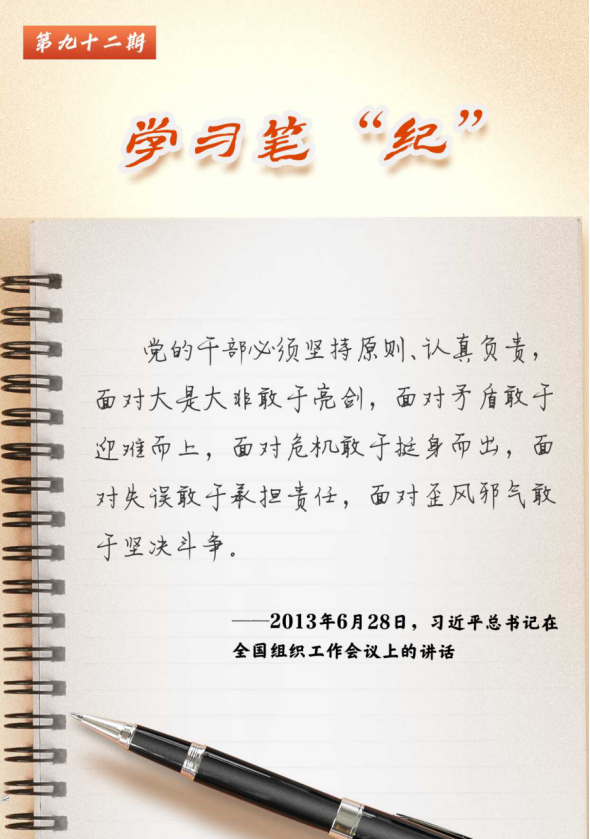 第九十二期
学习笔“纪”
党的干部必须坚持原则、认真负责，
面对大是大非敢于亮剑，面对矛盾敢于
迎难而上，面对危机敢于挺身而出，面
对失误敢于承担责任，面对歪风邪气敢
于坚决斗争。
——2013年6月28日，习近平总书记在
全国组织工作会议上的讲话